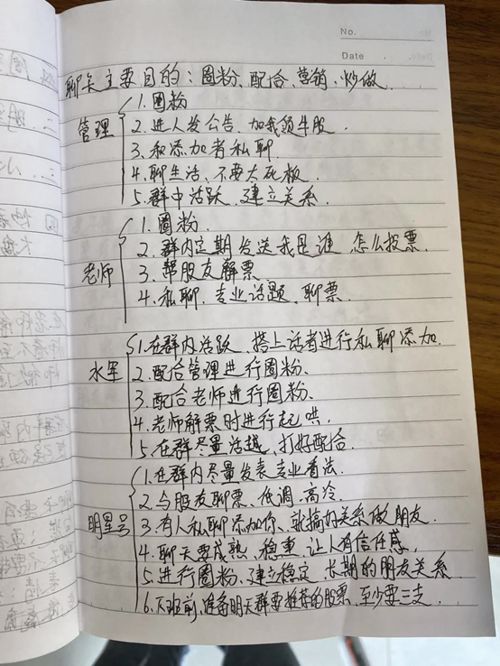 No.
Date
聊天主要目的：圈粉、配合、营销、炒做
管理
1.圈粉
2.进人发公告、加我领牛股.
3.和添加者私聊.
4.聊生活、不要太死板
5.群中活跃、建立关系.
老师
1.圈粉.
2.群内定期发送我是谁 怎么投票.
3.帮股友解票
4.私聊、专业话题、聊票.
水军
1.在群内活跃、搭上话者进行私聊添加.
2.配合管理进行圈粉、
3.配合老师进行圈粉、
4.老师解票时进行起哄
5.在群尽量活越、打好配合.
明星号
1.在群内尽量发表专业看法.
2.与股友聊票、低调、高冷.
3.有人私聊添加你、就搞的关系做朋友.
4.聊天要成熟、稳重、让人有信任感.
5.进行圈粉、建立稳定、长期的朋友关系.
6.下班前，准备明天群要推荐的股票、至少要三支.